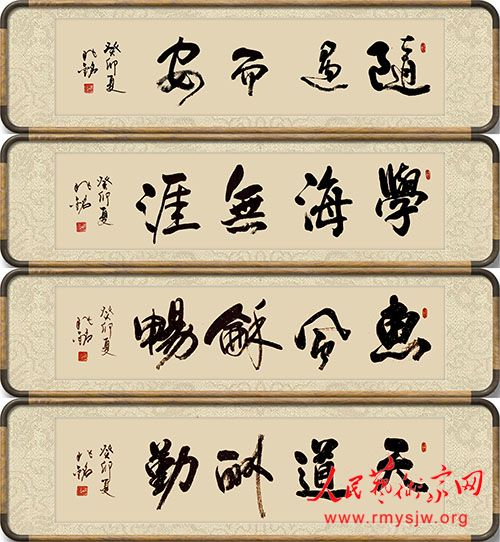 隨遇而安
癸卯夏
兆銘
學海無涯
癸卯夏
兆銘
惠風龢暢
癸卯夏
兆銘
天道酬勤
癸卯夏
兆銘
人民艺术家网
www.rmysjw.org